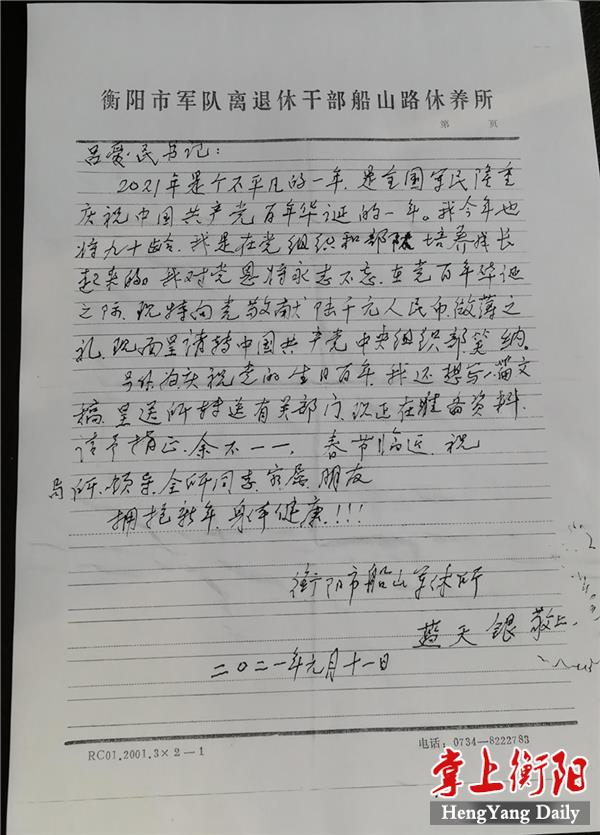 衡阳市军队离退休干部船山路休养所
第 页
吕爱民书记：
2021年是个不平凡的一年，是全国军民隆重
庆祝中国共产党百年华诞的一年。我今年也
将九十龄，我是在党组织和部队培养成长
起来的，我对党恩将永志不忘，在党百年华诞
之际，现特向党敬献陆千元人民币，做薄之
礼，现面呈请转中国共产党中央组织部笑纳。
另外为庆祝党的生日百年，我还想写一篇文
稿，呈送所转送有关部门，现正在准备资料，
请予指正，余不一一，春节临近，祝
局所领导、全所同志、家属、朋友
拥抱新年，身体健康！！！
衡阳市船山军休所
蓝天银敬上
二〇二一年元月十一日
RC01.2001.3×2—1
电话：0734—8222783
掌上衡阳
HengYang Daily